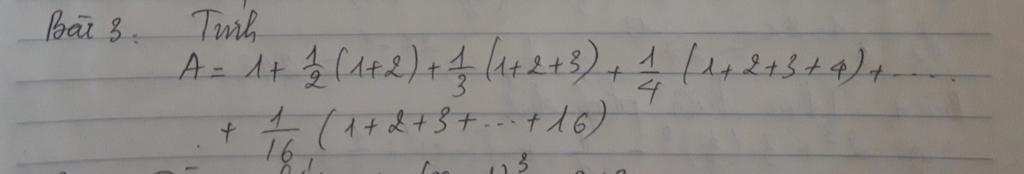 Bài 3: Tính
A = 1 + 1/2 (1+2) + 1/3 (1+2+3) + 1/4 (1+2+3+4) + .....
+ 1/16 (1+2+3+...+16)